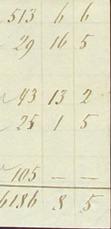 513 6 6
29 16 5
43 13 2
25 1 5
105 — —
6186 8 5